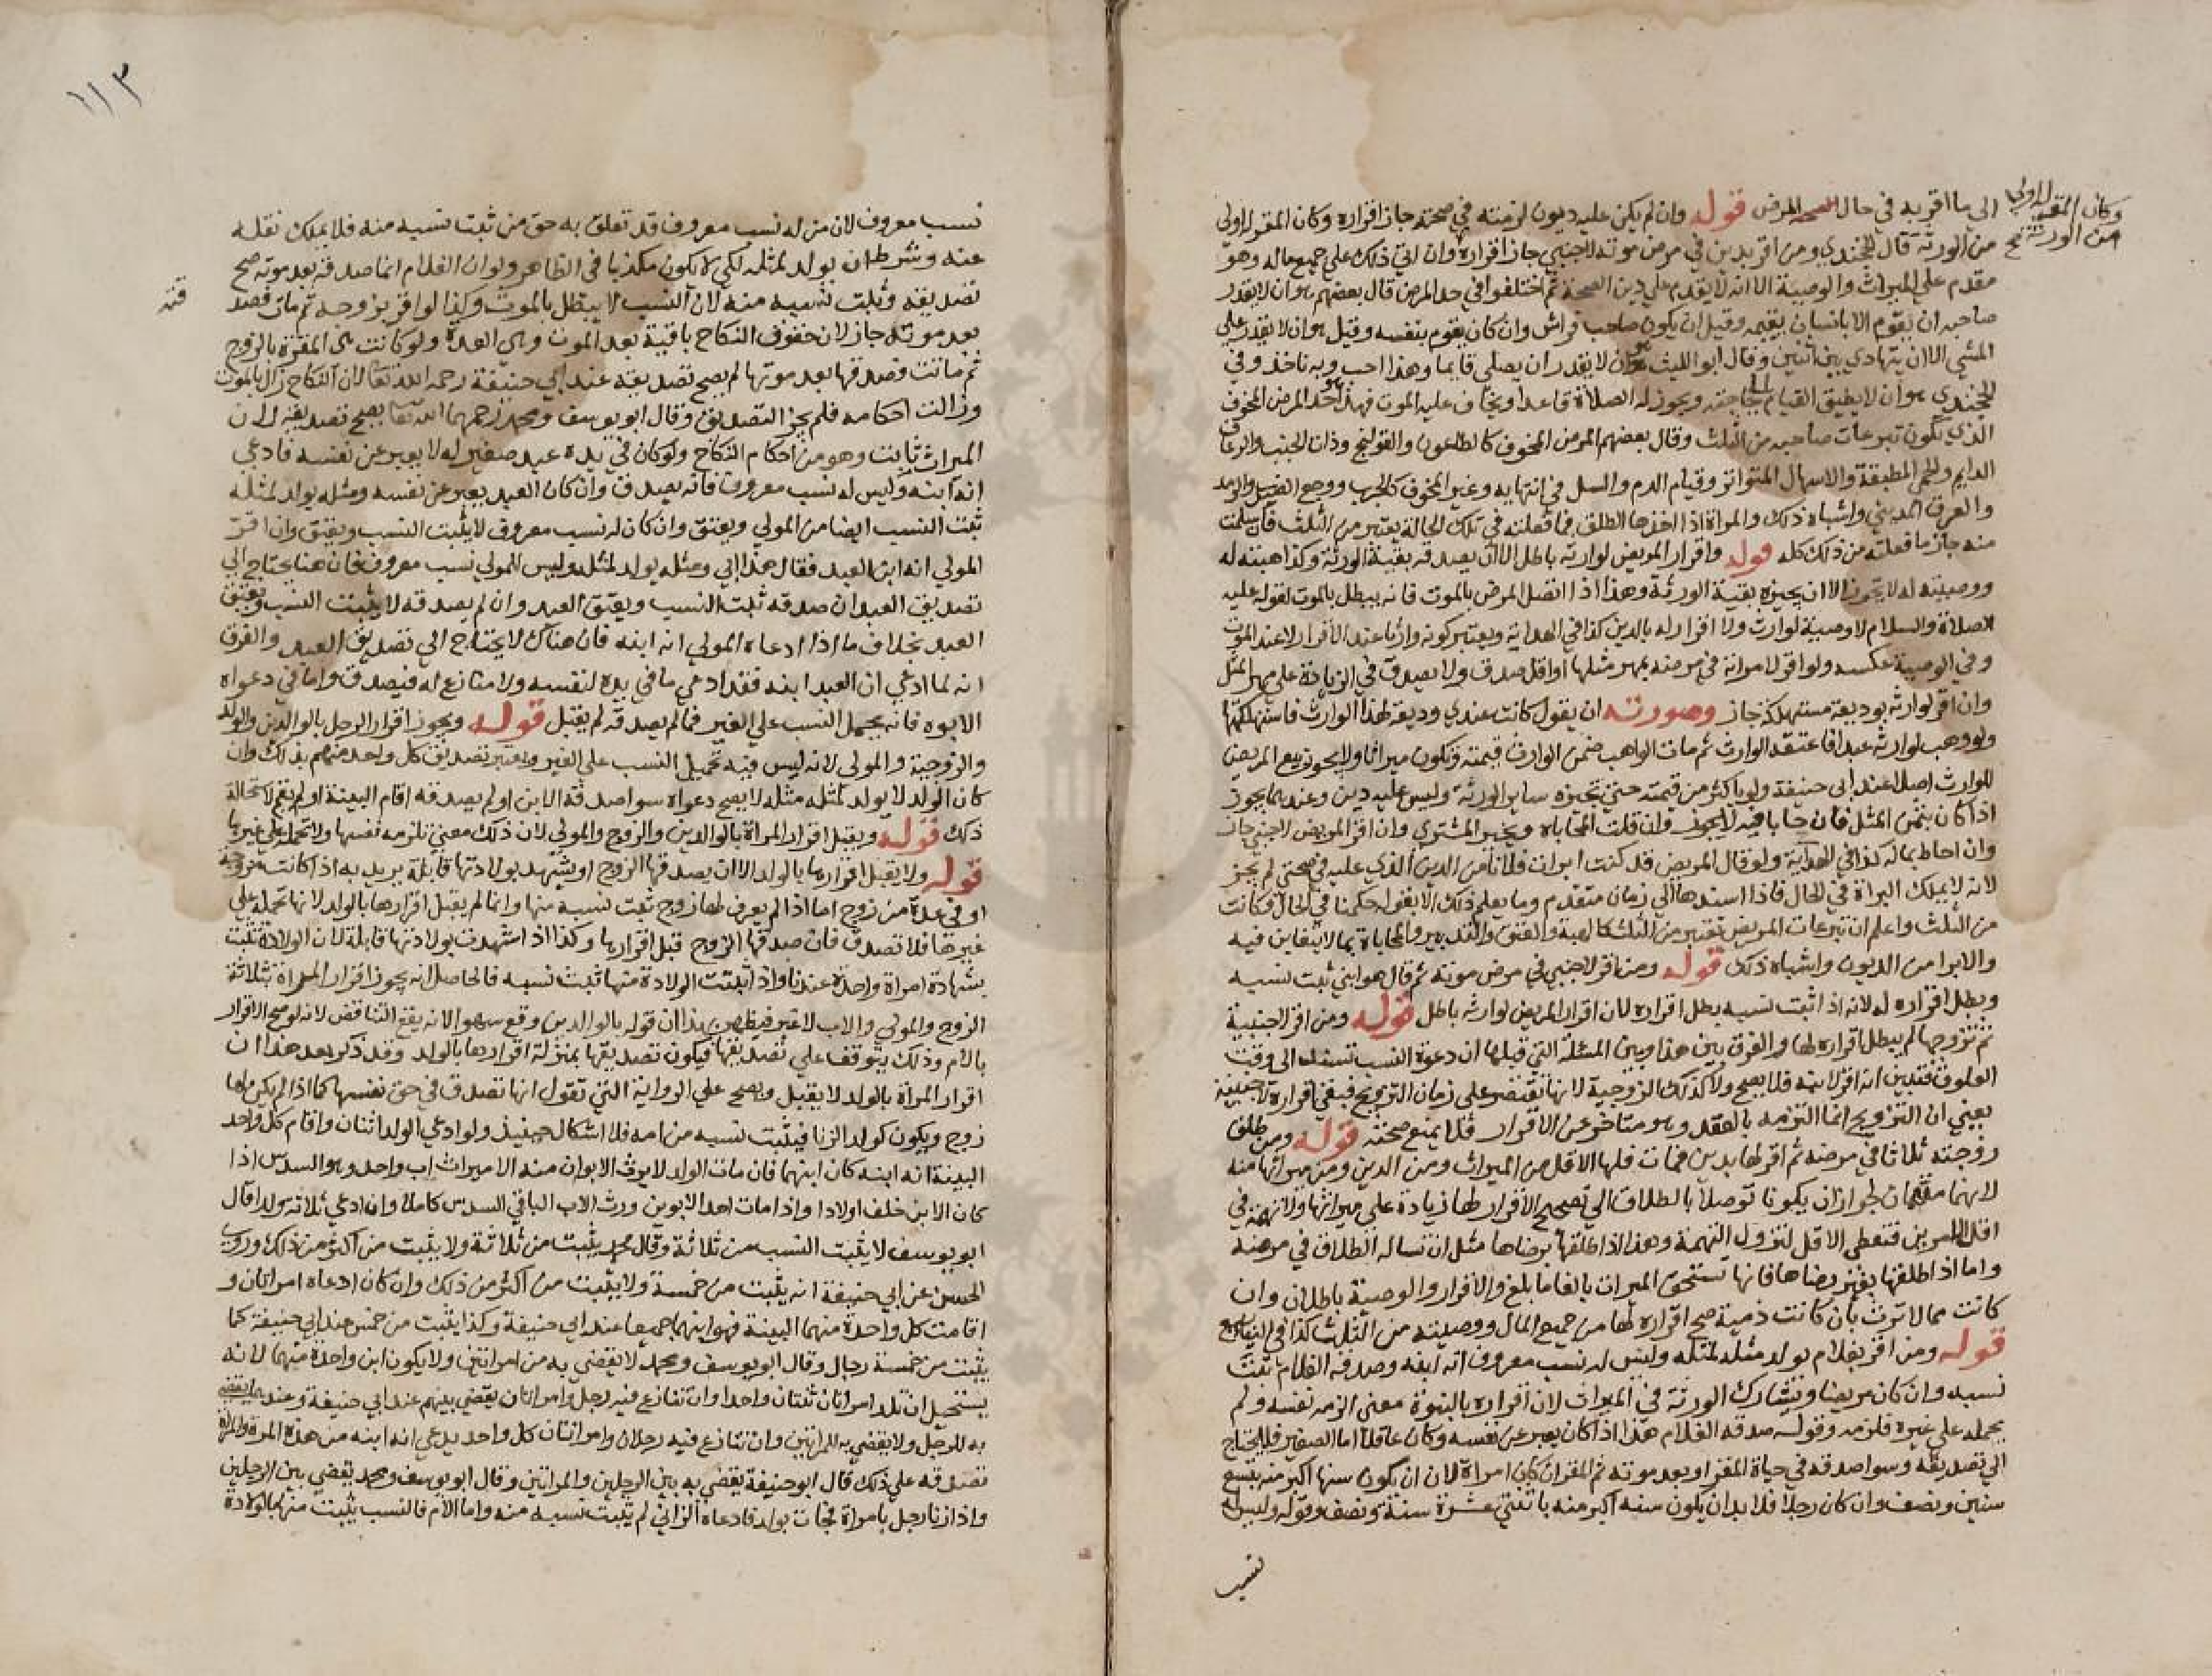 الي ما اقر به في حال الصحة المرض قوله وان لم يكن عليه ديون لزمته في صحته جاز اقراره وكان المقر له اولي
وكان المقر له اولي
من الورثة صح
من الورثة قال الخجندي ومن اقر بدين في مرض موته لاجنبي جاز اقراره وان اتي ذلك علي جميع ماله وهو
مقدم علي الميراث والوصية الا انه لا يقدم علي دين الصحة ثم اختلفوا في حد المرض قال بعضهم هو ان لا يقدر
صاحبه ان يقوم الا بانسان يقيمه وقيل ان يكون صاحب فراش وان كان يقوم بنفسه وقيل هو ان لا يقدر علي
المشي الا ان يتهادي بين اثنين وقال ابو الليث هو ان لا يقدر ان يصلي قايما وهذا احب وبه ناخذ وفي
الخجندي هو ان لا يطيق القيام الي حاجته ويجوز له الصلاة قاعدا ويخاف عليه الموت فهذا هو حد المرض المخوف
الذي تكون تبرعات صاحبه من الثلث وقال بعضهم المرض المخوف كالطاعون والقولنج وذات الجنب والرعاف
الدايم والحمي المطبقة والاسهال المتواتر وقيام الدم والسل في انتهايه وغير المخوف كالجرب ووجع الضرس والرمد
والعرق المديني واشباه ذلك والمراة اذا اخذها الطلق فما فعلته في تلك الحالة يعتبر من الثلث فان سلمت
منه جاز ما فعلته من ذلك كله قوله واقرار المريض لوارثه باطل الا ان يصدقه بقية الورثة وكذا هبته له
ووصيته له لا يجوز الا ان يجيزه بقية الورثة وهذا اذا اتصل المرض بالموت فانه يبطل بالموت لقوله عليه
الصلاة والسلام لا وصية لوارث ولا اقرار له بالدين كذا في الهداية ويعتبر كونه وارثا عند الاقرار لا عند الموت
وفي الوصية عكسه ولو اقر لامراته في مرضه بمهر مثلها او اقل صدق ولا يصدق في الزيادة علي مهر المثل
وان اقر لوارثه بوديعة مستهلكة جاز وصورته ان يقول كانت عندي وديعة لهذا الوارث فاستهلكتها
ولو وهب لوارثه عبدا فاعتقه الوارث ثم مات الواهب ضمن الوارث قيمته وتكون ميراثا ولا يجوز بيع المريض
للوارث اصلا عند ابي حنيفة ولو باكثر من قيمته حتي تجيزه ساير الورثة وليس عليه دين وعندهما يجوز
اذا كان بثمن المثل فان حابا فيه لا يجوز وان قلت المحاباه ويخير المشتري وان اقر المريض لاجنبي جاز
وان احاط بماله كذا في الهداية ولو قال المريض قد كنت ابرات فلانا من الدين الذي عليه في صحتي لم يجز
لانه لا يملك البراة في الحال فاذا اسندها الي زمان متقدم وما يعلم ذلك الا بقوله حكمنا في الحال وكانت
من الثلث واعلم ان تبرعات المريض تعتبر من الثلث كالهبة والعتق والتدبير والمحاباة بما لا يتغابن فيه
والابرا من الديون واشباه ذلك قوله ومن اقر لاجنبي في مرض موته ثم قال هو ابني ثبت نسبه
وبطل اقراره له لانه اذا ثبت نسبه بطل اقراره لان اقرار المريض لوارثه باطل قوله ومن اقر لاجنبية
ثم تزوجها لم يبطل اقراره لها والفرق بين هذا وبين المسئلة التي قبلها ان دعوة النسب تستند الي وقت
العلوق فتبين انه اقر لابنه فلا يصح ولا كذلك الزوجية لانها تقتصر علي زمان التزويج فبقي اقراره لاجنبية
يعني ان التزويج انما التزمه بالعقد وهو متاخر عن الاقرار فلا يمنع صحته قوله ومن طلق
زوجته ثلاثا في مرضه ثم اقر لها بدين فمات فلها الاقل من الميراث ومن الدين ومن ميراثها منه
لانهما متهمان لجواز ان يكونا توصلا بالطلاق الي تصحيح الاقرار لها زيادة علي ميراثها ولا تهمة في
اقل الامرين فتعطي الاقل لتزول التهمة وهذا اذا طلقها برضاها مثل ان تساله الطلاق في مرضه
واما اذا طلقها بغير رضاها فانها تستحق الميراث بالغا ما بلغ والاقرار والوصية باطلان وان
كانت ممن لا ترث بان كانت ذمية صح اقراره لها من جميع المال ووصيته من الثلث كذا في الينابيع
قوله ومن اقر بغلام يولد مثله لمثله وليس له نسب معروف انه ابنه وصدقه الغلام ثبت
نسبه وان كان مريضا ويشارك الورثة في الميراث لان اقراره بالبنوة معني الزمه نفسه ولم
يحمله علي غيره فلزمه وقوله صدقه الغلام هذا اذا كان يعبر عن نفسه وكان عاقلا اما الصغير فلا يحتاج
الي تصديقه وسوا صدقه في حياة المقر او بعد موته ثم المقر ان كان امراة لان ان تكون سنها اكبر منه بتسع
سنين ونصف وان كان رجلا فلا بد ان يكون سنه اكبر منه باثنتي عشرة سنة ونصف وقوله وليس له
نسب
١١٣
نسب معروف لان من له نسب معروف قد تعلق به حق من ثبت نسبه منه فلا يملك نقله
عنه وشرط ان يولد لمثله لكي لا يكون مكذبا في الظاهر ولو ان الغلام انما صدقه بعد موته صح
تصديقه وثبت نسبه منه لان النسب لا يبطل بالموت وكذا لو اقر بزوجه ثم مات فصد
قته
بعد موته جاز لان حقوق النكاح باقية بعد الموت وهي العدة ولو كانت هي المقرة بالزوج
ثم ماتت فصدقها بعد موتها لم يصح تصديقه عند ابي حنيفة رحمه الله تعا لان النكاح زال بالموت
وزالت احكامه فلم يجز التصديق وقال ابو يوسف ومحمد رحمهما الله تعا يصح تصديقه لان
الميراث ثابت وهو من احكام النكاح ولو كان في يده عبد صغير له لا يعبر عن نفسه فادعي
انه ابنه وليس له نسب معروف فانه يصدق وان كان العبد يعبر عن نفسه ومثله يولد لمثله
ثبت النسب ايضا من المولي ويعتق وان كان له نسب معروف لا يثبت النسب ويعتق وان اقر
المولي انه ابن العبد فقال هذا ابي ومثله يولد لمثله وليس للمولي نسب معروف فان هنا يحتاج الي
تصديق العبد ان صدقه ثبت النسب ويعتق العبد وان لم يصدقه لا يثبت النسب ويعتق
العبد بخلاف ما اذا ادعاه المولي انه ابنه فان هناك لا يحتاج الي تصديق العبد والفرق
انه لما ادعي ان العبد ابنه فقد ادعي ما في يده لنفسه ولا منازع له فيصدق واما في دعواه
الابوه فانه يحمل النسب علي الغير فما لم يصدقه لم يقبل قوله ويجوز اقرار الرجل بالوالدين والولد
والزوجة والمولي لانه ليس فيه تحميل النسب علي الغير ويعتبر تصديق كل واحد منهم بذلك وان
كان الولد لا يولد لمثله مثله لا يصح دعواه سوا صدقه الابن او لم يصدقه اقام البينة او لم يقم لاستحالة
ذلك قوله ويقبل اقرار المراة بالوالدين والزوج والمولي لان ذلك معني تلزمه نفسها ولا تحمله علي غيرها
قوله ولا يقبل اقرارها بالولد الا ان يصدقها الزوج او يشهد بولادتها قابلة يريد به اذا كانت مزوجة
او في عدة من زوج اما اذا لم يعرف لها زوج ثبت نسبه منها وانما لم يقبل اقرارها بالولد لانها تحمله علي
غيرها فلا تصدق فان صدقها الزوج قبل اقرارها وكذا اذا شهدت بولادتها قابلة لان الولادة تثبت
بشهادة امراة واحدة عندنا واذا ثبتت الولادة منها ثبت نسبه فالحاصل انه يجوز اقرار المراة بثلاثة
الزوج والمولي والاب لا غير فيظهر بهذا ان قوله بالوالدين وقع سهوا لانه يقع التناقض لانه لو صح الاقرار
بالام وذلك يتوقف علي تصديقها فيكون تصديقها بمنزلة اقرارها بالولد وقد ذكر بعد هذا ان
اقرار المراة بالولد لا يقبل ويصح علي الرواية التي تقول انها تصدق في حق نفسها كما اذا لم يكن لها
زوج ويكون كولد الزنا فيثبت نسبه من امه فلا اشكال حينئذ ولو ادعي الولد اثنان واقام كل واحد
البينة انه ابنه كان ابنهما فان مات الولد لا يرث الابوان منه الا ميراث اب واحد وهو السدس اذا
كان الابن خلف اولادا واذا مات احد الابوين ورث الاب الباقي السدس كاملا وان ادعي ثلاثة ولدا قال
ابو يوسف لا يثبت النسب من ثلاثة وقال محمد يثبت من ثلاثة ولا يثبت من اكثر من ذلك وروي
الحسن عن ابي حنيفة انه يثبت من خمسة ولا يثبت من اكثر من ذلك وان كان ادعاه امراتان و
اقامت كل واحدة منهما البينة فهو ابنهما جميعا عند ابي حنيفة وكذا يثبت من خمس عند ابي حنيفة كما
يثبت من خمسة رجال وقال ابو يوسف ومحمد لا يقضي به من امراتين ولا يكون ابن واحدة منهما لانه
يستحيل ان تلد امراتان ثنتان واحدا وان تنازع فيه رجل وامراتان يقضي بينهم عند ابي حنيفة وعندهما يقضي
به للرجل ولا يقضي به للمراتين وان تنازع فيه رجلان وامراتان كل واحد يدعي انه ابنه من هذه المراة والمراة
تصدقه علي ذلك قال ابو حنيفة يقضي به بين الرجلين والمراتين وقال ابو يوسف ومحمد يقضي بين الرجلين
واذا زنا رجل بامراة فجات بولد فادعاه الزاني لم يثبت نسبه منه واما الام فالنسب يثبت منها بالولادة